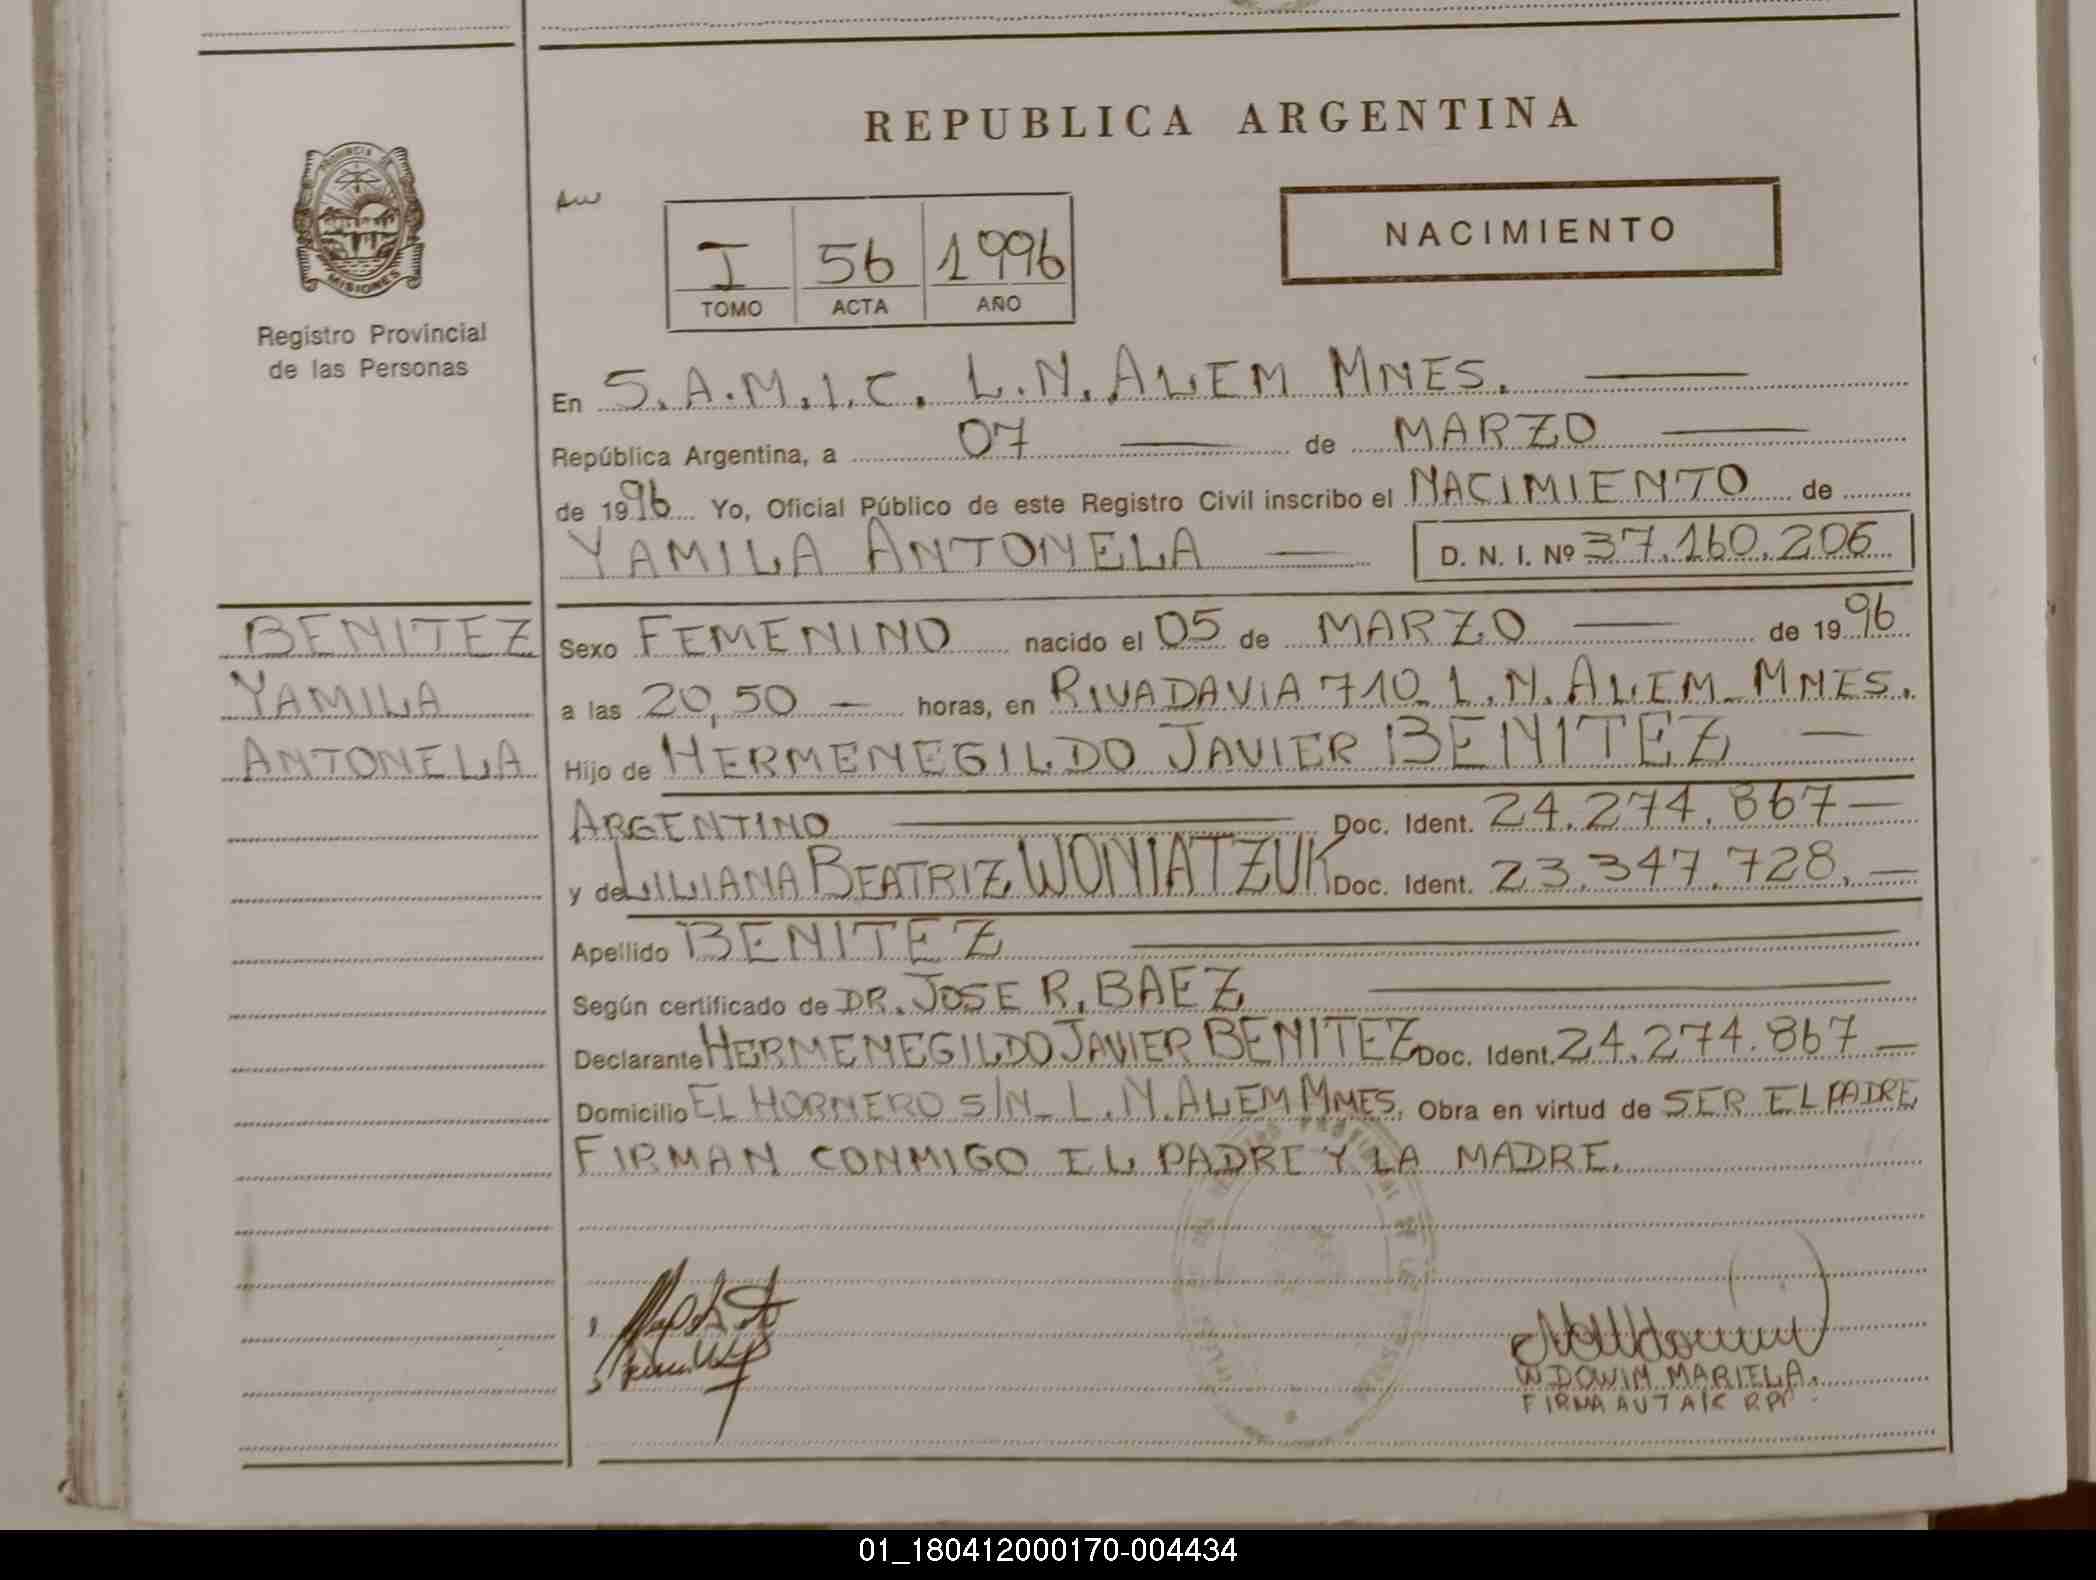 REPUBLICA ARGENTINA
PROVINCIA DE
MISIONES
Registro Provincial
de las Personas
NACIMIENTO
I 56 1996
TOMO ACTA AÑO
En S.A.M.I.C. L.N. ALEM MNES.
República Argentina, a 07 de MARZO
de 1996 Yo, Oficial Público de este Registro Civil inscribo el NACIMIENTO de
YAMILA ANTONELA D. N. I. Nº 37.160.206
BENITEZ
YAMILA
ANTONELA
Sexo FEMENINO nacido el 05 de MARZO de 1996
a las 20,50 horas, en RIVADAVIA 710 L.N. ALEM - MNES.
Hijo de HERMENEGILDO JAVIER BENITEZ
ARGENTINO Doc. Ident. 24.274.867
y de LILIANA BEATRIZ WONIATZUK Doc. Ident. 23.347.728.
Apellido BENITEZ
Según certificado de DR. JOSE R. BAEZ
Declarante HERMENEGILDO JAVIER BENITEZ Doc. Ident. 24.274.867
Domicilio EL HORNERO S/N - L.N. ALEM MNES. Obra en virtud de SER EL PADRE
FIRMAN CONMIGO EL PADRE Y LA MADRE.
WDOWIN MARIELA.
FIRMA AUT A/C RPP
01_180412000170-004434